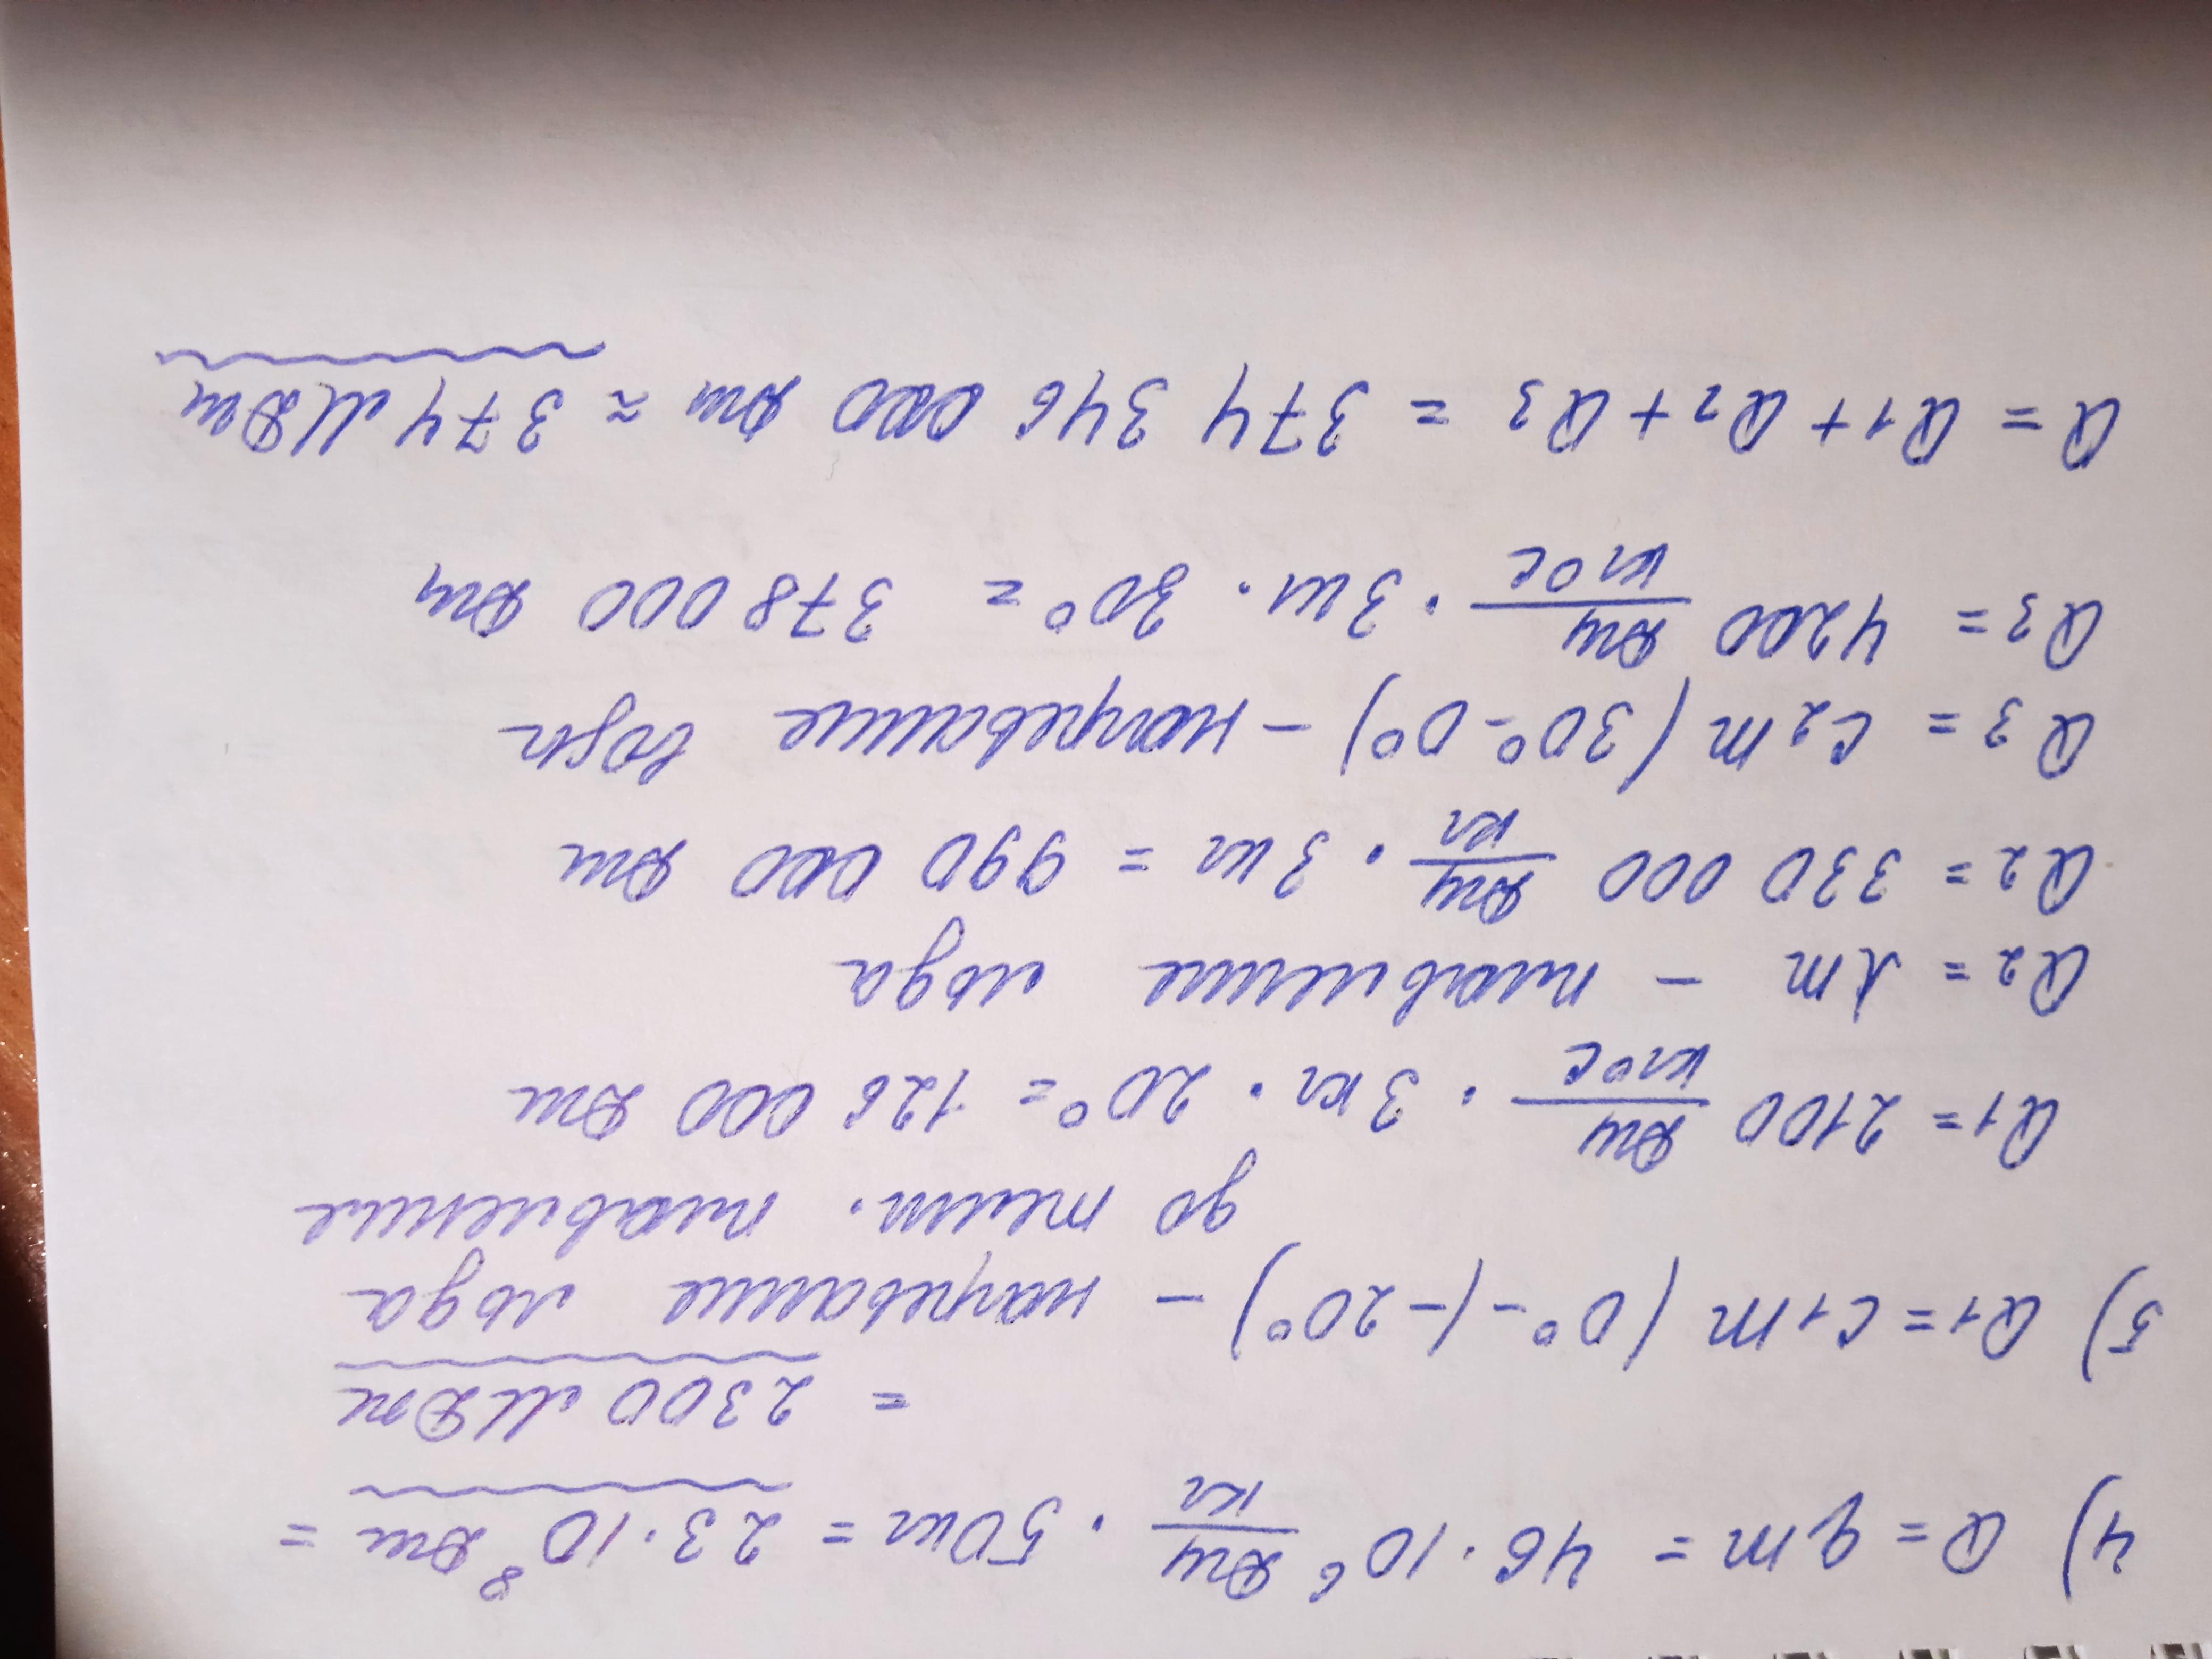 4) Q = qm = 46·10⁶ Дж/кг · 50кг = 23·10⁸ Дж =
= 2300 МДж
5) Q1 = c1m (0° - (-20°) - нагревание льда
до темп. плавление
Q1 = 2100 Дж/кг°C · 3кг · 20° = 126 000 Дж
Q2 = λm - плавление льда
Q2 = 330 000 Дж/кг · 3кг = 990 000 Дж
Q3 = c2m (30° - 0°) - нагревание воды
Q3 = 4200 Дж/кг°C · 3кг · 30° = 378 000 Дж
Q = Q1 + Q2 + Q3 = 374 346 000 Дж ≈ 374 МДж